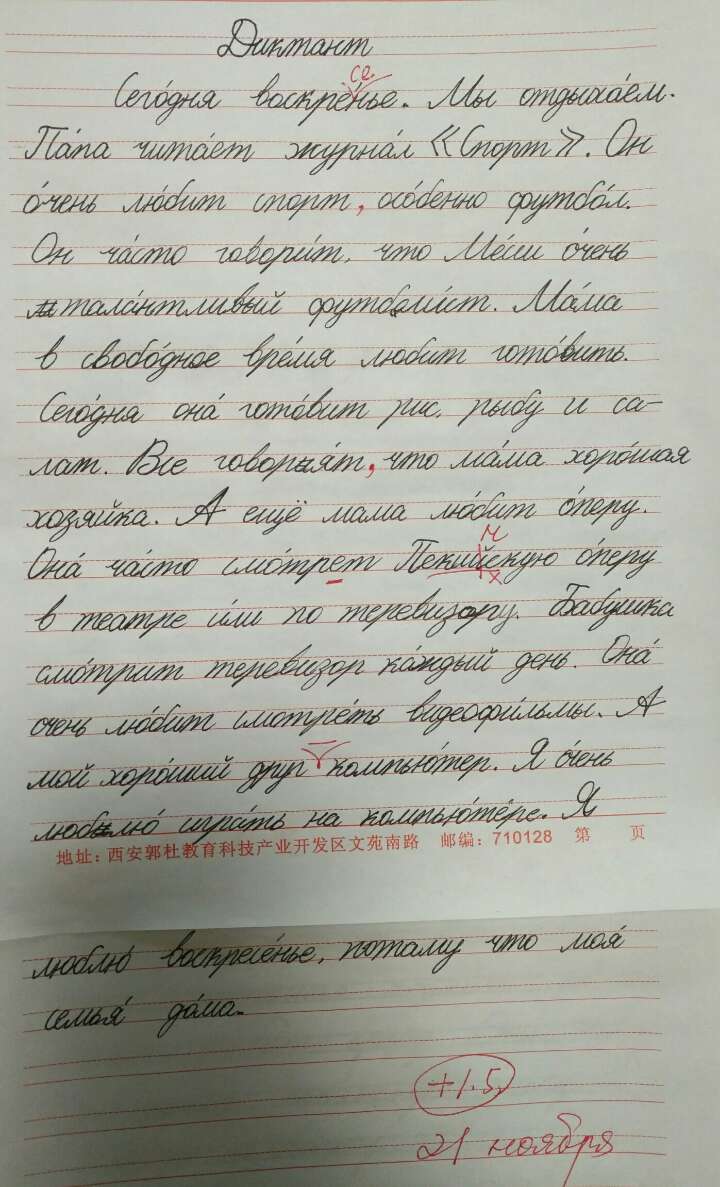 Диктант
се
Сего́дня воскре́нье. Мы отдыха́ем.
Па́па чита́ет журна́л «Спорт». Он
о́чень лю́бит спорт, осо́бенно футбо́л.
Он ча́сто говори́т, что Ме́си о́чень
тала́нтливый футболи́ст. Ма́ма
в свобо́дное вре́мя любит гото́вить.
Сего́дня она́ гото́вит рис, рыбу и са-
лат. Все говоря́т, что ма́ма хоро́шая
хозя́йка. А ещё мама лю́бит о́перу.
Она́ ча́сто смо́трет Пекийскую о́перу
в театре и́ли по теревизору. Бабушка
смо́трит теревизор ка́ждый день. Она́
очень лю́бит смотре́ть видеофи́льмы. А
мой хоро́ший друг – компью́тер. Я о́чень
люблю́ игра́ть на компью́тере. Я
地址：西安郭杜教育科技产业开发区文苑南路 邮编：710128 第 页
люблю́ воскресе́нье, потаму что моя́
семья́ до́ма.
+1.5
21 ноября